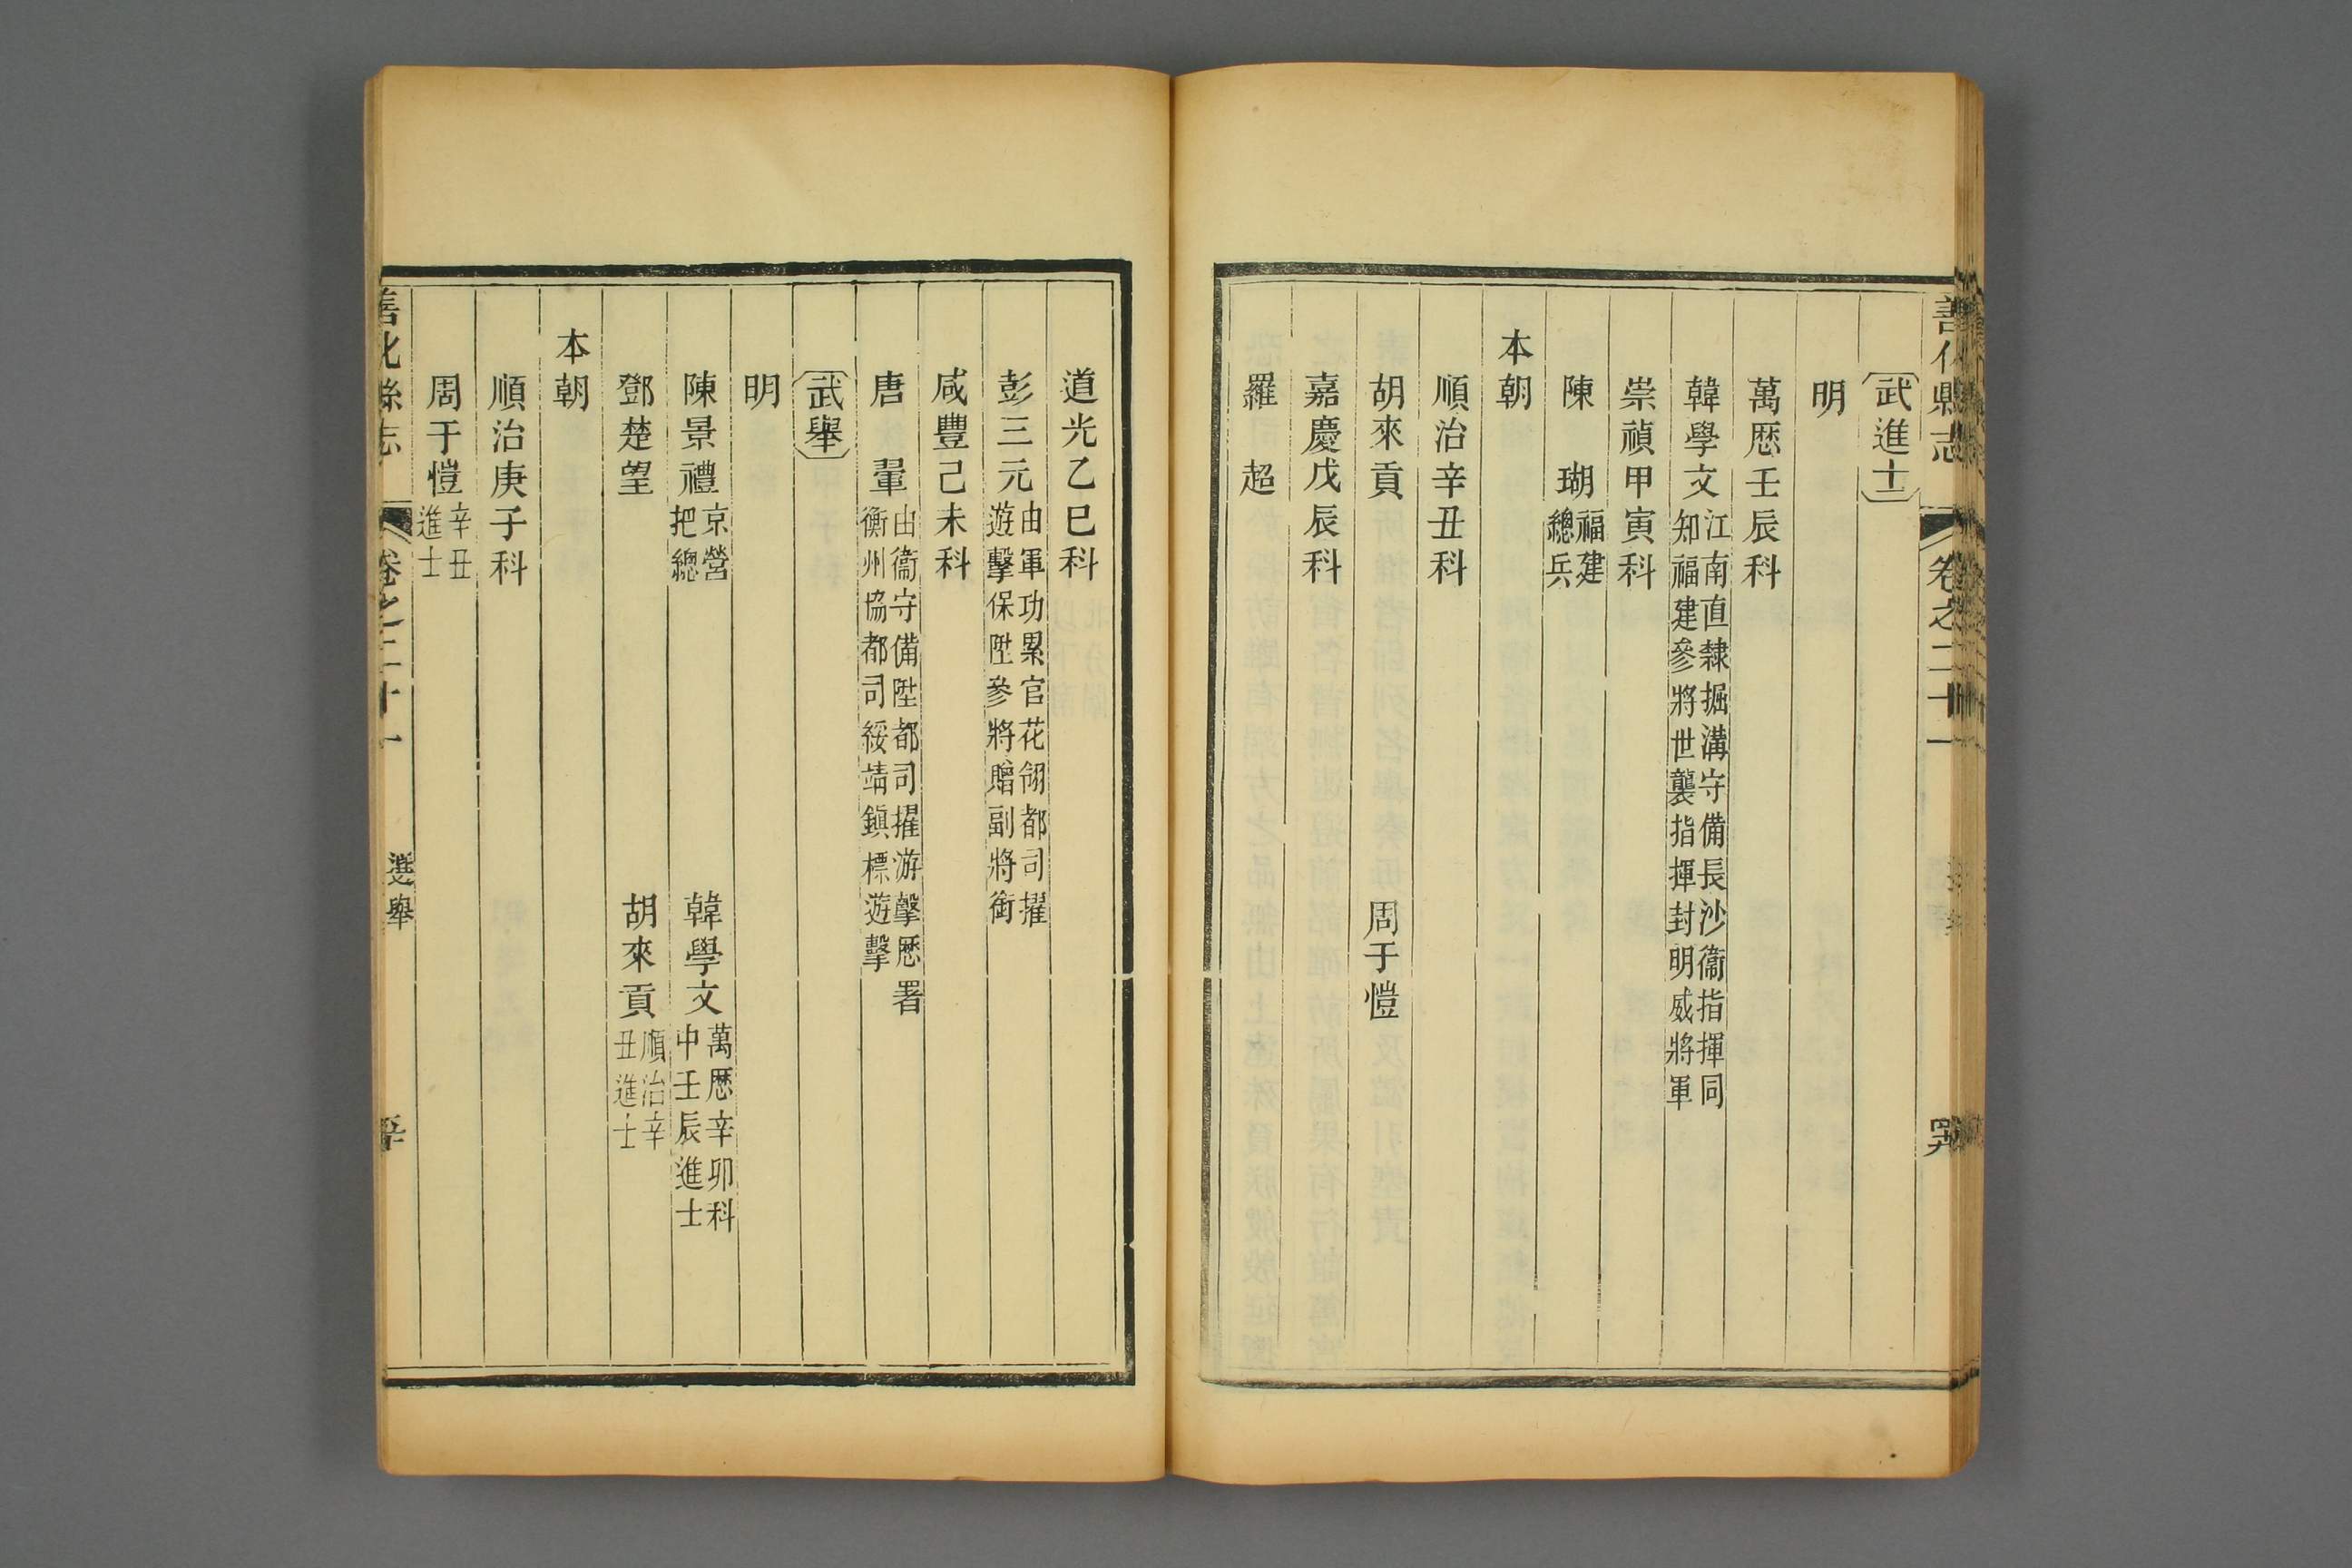 善化縣志 卷之二十一
武進士
明
萬歷壬辰科
韓學文 江南直隸掘溝守備長沙衞指揮同
知福建參將世襲指揮封明威將軍
崇禎甲寅科
陳 瑚 福建
總兵
本朝
順治辛丑科
胡來貢 周于愷
嘉慶戊辰科
羅 超
道光乙巳科
彭三元 由軍功累官花翎都司擢
遊擊保陞參將贈副將銜
咸豐己未科
唐 翬 由衞守備陞都司擢游擊歷署
衡州協都司綏靖鎭標遊擊
武舉
明
陳景禮 京營
把總
韓學文 萬歷辛卯科
中壬辰進士
鄧楚望
胡來貢 順治辛
丑進士
本朝
順治庚子科
周于愷 辛丑
進士
善化縣志 卷之二十一 選舉